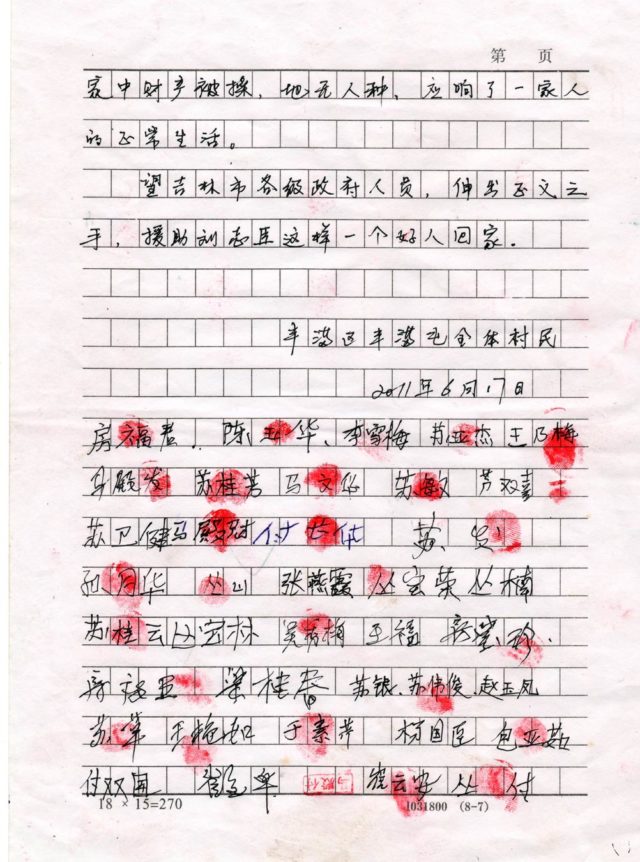 第 页
家中财产被操，地无人种，应响了一家人
的正常生活。
望吉林市各级政府人员，伸出正义之
手，援助刘志臣这样一个好人回家.
丰满区丰满屯全体村民
2011年6月17日
房福君.. 陈玉华、李雪梅 苏亚杰 王乃梅
马殿发 苏桂芳 马文华 苏敏 苏双喜
苏卫健 马殿财 付长付 苏贵
孙月华 丛山 张燕霞 丛宝荣 丛楠
苏桂云 丛宝林 吴秀梅 王福
梁桂香 苏银、苏伟俊、赵玉凤
苏华 于素萍 杨国臣 包亚茹
付双国 丛付
18 × 15=270 1031800 (8-7)